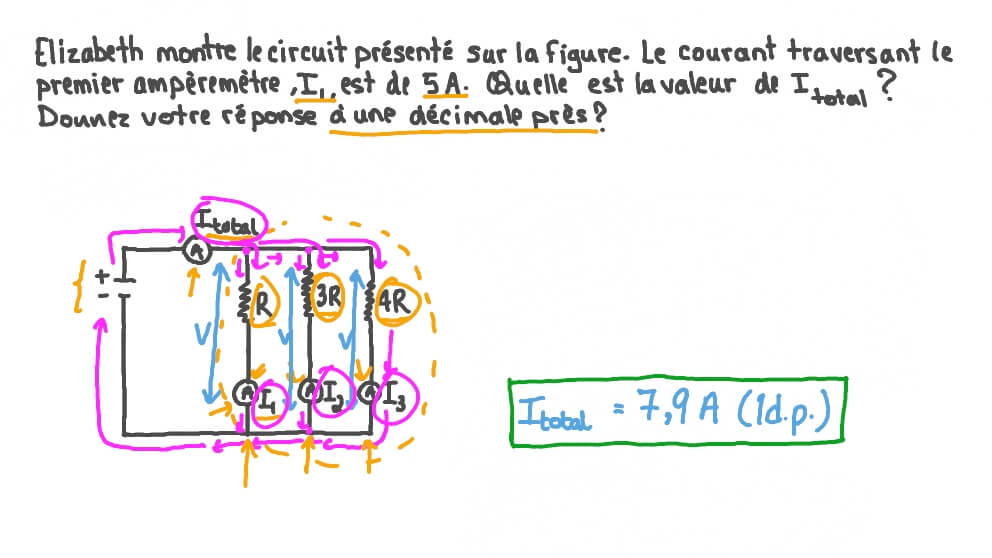 Elizabeth montre le circuit présenté sur la figure. Le courant traversant le
premier ampèremètre, I₁, est de 5 A. Quelle est la valeur de I total ?
Donnez votre réponse à une décimale près?
I total
A
+
-
R 3R 4R
V V V
A I₁ A I₂ A I₃
I total = 7,9 A (1d.p.)